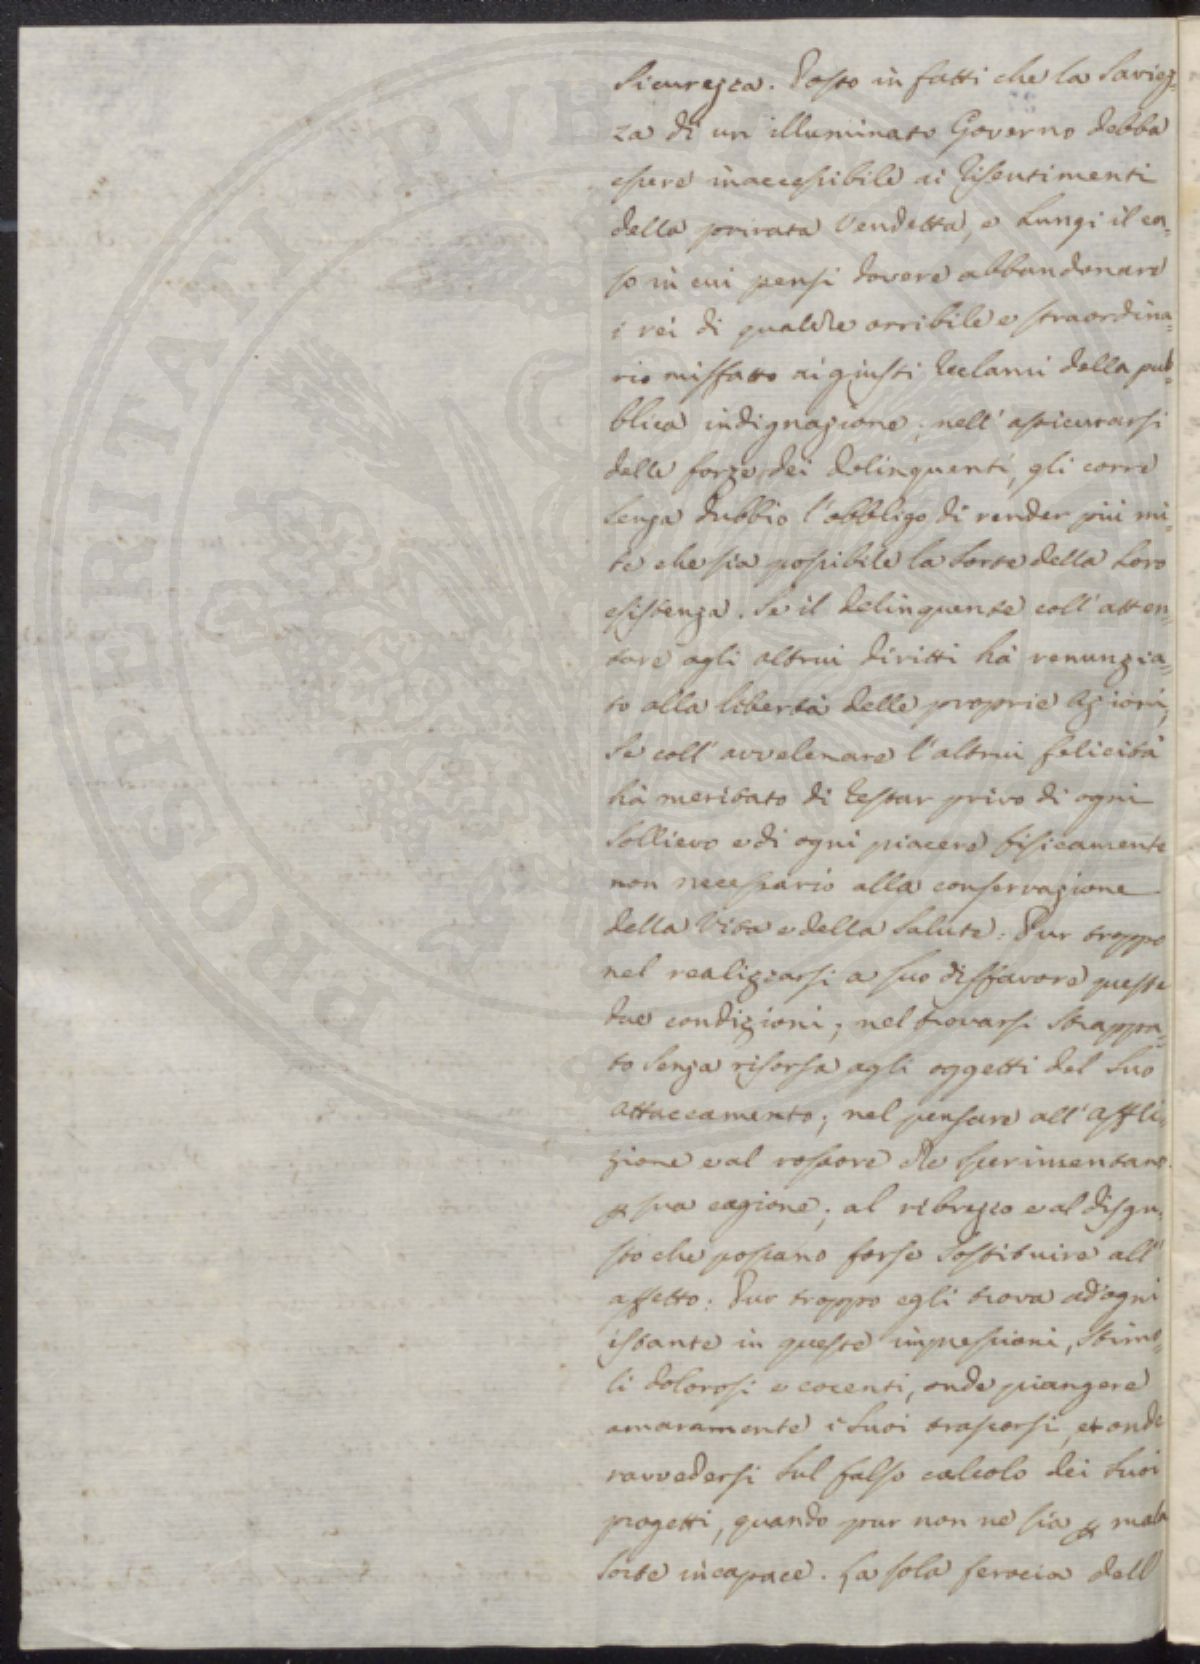 PROSPERITATI PVBLICAE
Sicurezza. Posto in fatti che la Saviez-
za di un illuminato Governo debba
essere inaccessibile ai risentimenti
della privata Vendetta, e lungi il ca-
so in cui pensi dovere abbandonare
i rei di qualche orribile e straordina-
rio misfatto ai giusti reclami della pub-
blica indignazione; nell' assicurarsi
delle forze dei delinquenti, gli corre
senza dubbio l'obbligo di render più mi-
te che sia possibile la sorte della loro
esistenza. Se il delinquente coll' atten-
tare agli altrui diritti hà renunzia-
to alla libertà delle proprie azioni,
se coll' avvelenare l'altrui felicità
hà meritato di restar privo di ogni
sollievo e di ogni piacere fisicamente
non necessario alla conservazione
della Vita e della Salute: Pur troppo
nel realizzarsi a suo disfavore queste
due condizioni; nel trovarsi strappa-
to senza risorsa agli oggetti del suo
attaccamento; nel pensare all' affli-
zione e al rossore che sperimentano
p sua cagione; al ribrezzo e al disgu-
sto che possano forse sostituire all'
affetto: Pur troppo egli trova ad ogni
istante in queste impressioni, stimo-
li dolorosi e cocenti, onde piangere
amaramente i suoi trascorsi, et onde
ravvedersi sul falso calcolo dei suoi
progetti, quando pur non ne sia p mala
sorte incapace. La sola ferocia dell